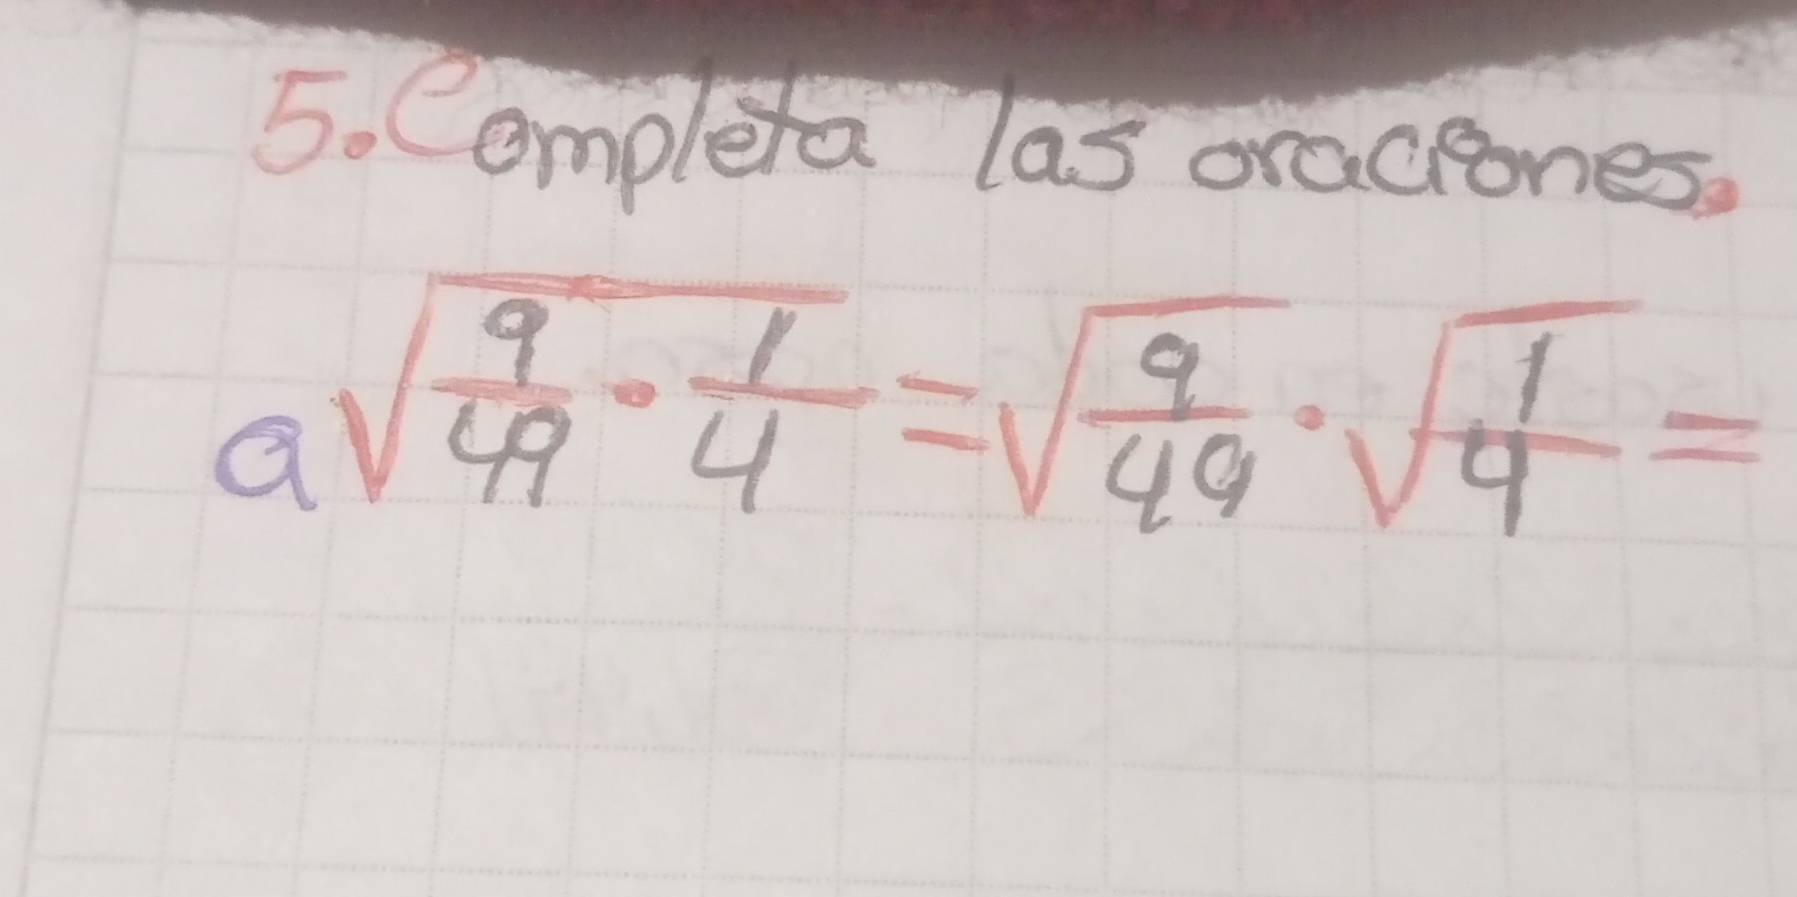 5. Completa las oraciones.
a √(9/49 · 1/4) = √(9/49) · √(1/4) =